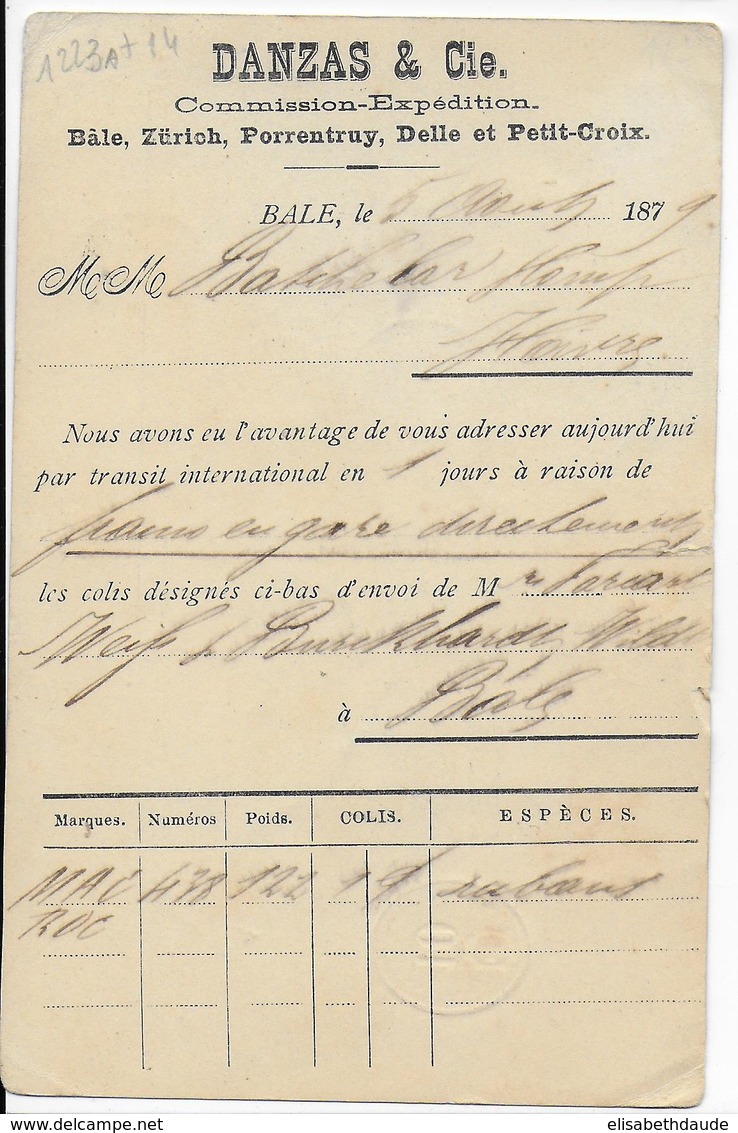 1223A+14
DANZAS & Cie.
Commission-Expédition.
Bâle, Zürich, Porrentruy, Delle et Petit-Croix.
BALE, le 5 Août 1879
M M
Hâvre
Nous avons eu l'avantage de vous adresser aujourd'hui
par transit international en 1 jours à raison de
franco en gare directement
les colis désignés ci-bas d'envoi de M
Weiss & Burckhardt Wildt
à Bâle
Marques. Numéros Poids. COLIS. ESPÈCES.
MAC 438 122 1 rubans
ROC
elisabethdaude